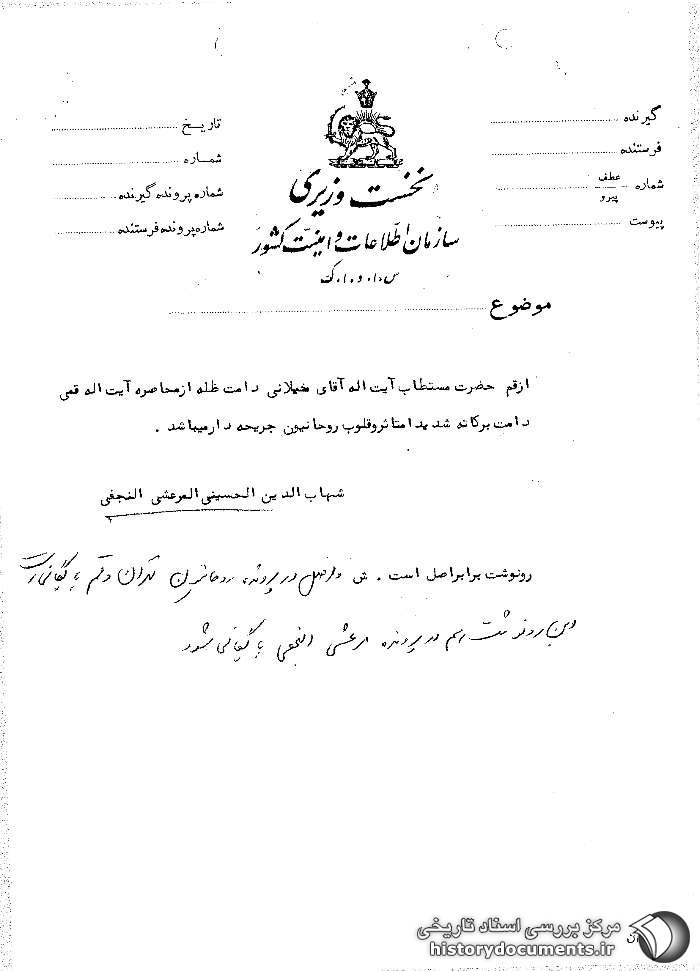 گیرنده
فرستنده
شماره عطف پیرو
پیوست
تاریخ
شماره
شماره پرونده گیرنده
شماره پرونده فرستنده
نخست وزیری
سازمان اطلاعات و امنیت کشور
س.ا.و.ا.ک
موضوع
ازقم حضرت مستطاب آیت اله آقای میلانی دامت ظله ازمحاصره آیت اله قمی
دامت برکاته شدیدا متاثروقلوب روحانیون جریحه دارمیباشد .
شهاب الدین الحسینی المرعشی النجفی
رونوشت برابراصل است . ش اصل در پرونده روحانیون تهران و قم بایگانی است
این رونوشت هم در پرونده مرعشی النجفی بایگانی شود
مرکز بررسی اسناد تاریخی
historydocuments.ir